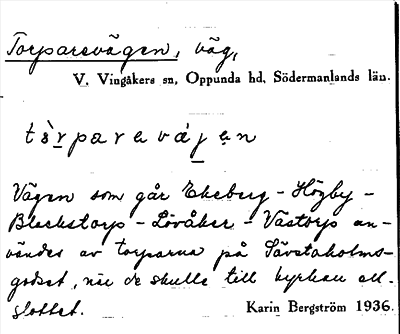 Torparevägen, väg,
V. Vingåkers sn, Oppunda hd, Södermanlands län.
tòrparevájen
Vägen som går Ekeberg - Högby -
Blackstorp - Lövåker - Västorp an-
vändes av torparna på Sävstaholms-
godset, när de skulle till kyrkan ell.
slottet.
Karin Bergström 1936.